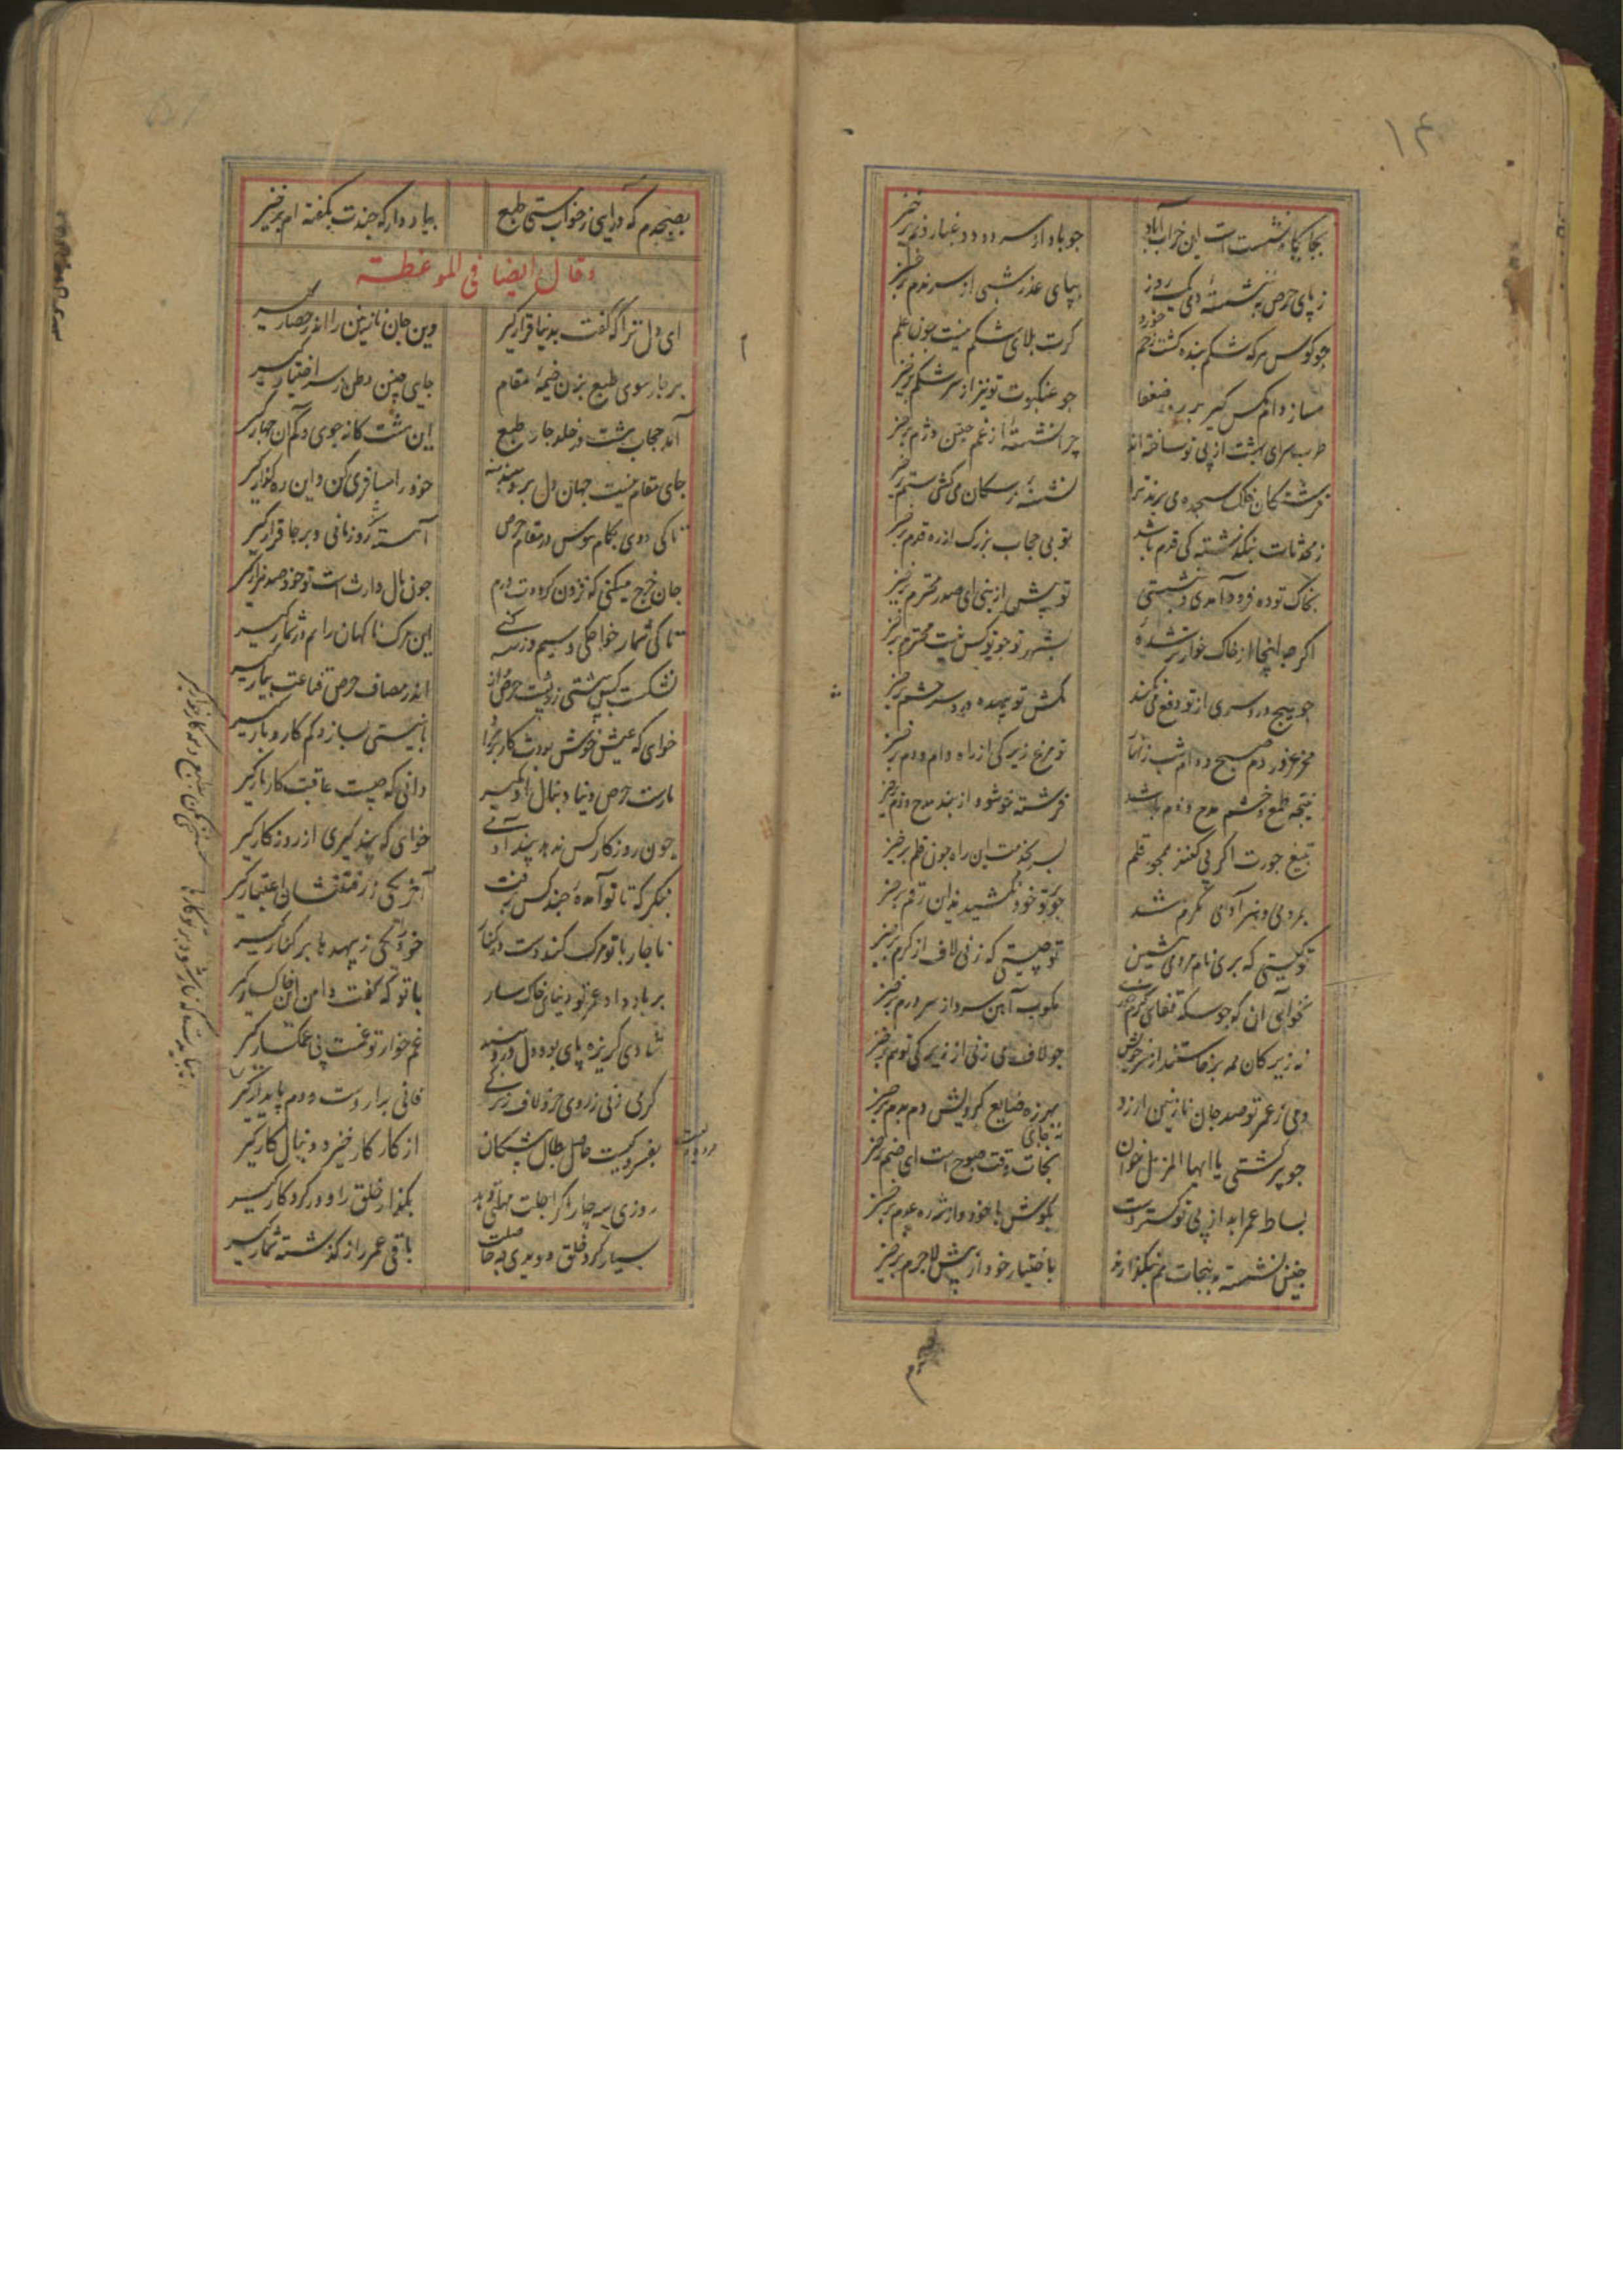 ۱۴
بجایگاه نشست است این خراب آباد
چو باد از سر دود و غبار و نم برخیز
ز پای حرص چو ننشسته‌ٔ دمی یک روز
بپای عذر شبی از سر ندم برخیز
چو کوس هر که شکم بنده گشت زخم خورد
گرت بلای شکم نیست چون علم برخیز
مساز دام مگس گیر بر ره ضعفا
چو عنکبوت تو نیز از سر شکم برخیز
طرب سرای بهشت از پی تو ساخته‌اند
چرا نشستهٔ از غم چنین دژم برخیز
فرشتگان فلک سجده می برند ترا
نشستهٔ ز سکان می کشی ستم برخیز
ز محدثات بنگذشته کی قدم باشد
تو بی حجاب بزرگ از ره قدم برخیز
بخاک توده فرود آمدی و بنشستی
تو پیش ازینی ای صدر محترم برخیز
اگر چه اینجا از خاک خوارتر شدهٔ
بشهر تو چو تو کس نیست محترم برخیز
چو هیچ درد سری از تو دفع می نکند
مکش تو بیهده درد سر حشم برخیز
مخر غرور دم صبح و دام شب ز آنک
تو مرغ زیرکی از راه دام و دم برخیز
نتیجه طمع و خشم مدح و ذم باشد
فرشته خو شو و از بند مدح و ذم برخیز
بتیغ جورت اگر پی کنند همچو قلم
بسر بخدمت این راه چون قلم برخیز
بمردمی و هنر آدمی مکرم شد
چو تو خود نکشیدند این رقم برخیز
تو کیستی که بری نام مردمی بنشین
تو چیستی که زنی لاف از کرم برخیز
نخواهی آن که چو سکه قفای گرم خوری
مکوب آهن سرد از سر درم برخیز
نه زیرکان همه برخاستند از سر خویش
چو لاف می زنی از زیرکی تو هم برخیز
دمی ز عمر تو صد جان نازنین ارزد
بهرزه ضایع گردانیش دم بدم برخیز
چو پیر گشتی یا ایها المزمل خوان
نه جای خواب وقت صبوح است ای صنم برخیز
بساط عمر ابد از پی تو گستردست
بکوش با خود و از شه ره عدم برخیز
چنین نشسته و بنجات هم بنگذارند
باختیار خود از پیش لاجرم برخیز
بصبحدم که در آیی ز خواب مستی طبع
بیاد دار که چندت بگفته ام برخیز
وقال ایضا فی الموعظة
ای دل ترا که گفت بدنیا قرار گیر
وین جان نازنین را اندر حصار گیر
بر چار سوی طبع بزن خیمهٔ مقام
جای چنین وطن ز سر اختیار گیر
آمد حجاب هشت در خلد چار طبع
این هشت گانه جوی و کم آن چهار گیر
جای مقام نیست جهان دل برو منه
خود را مسافری کن و این ره گذار گیر
تا کی دوی بگام هوس در مقام حرص
آهسته گرد زمانی و بر جا قرار گیر
جان خرج میکنی که فزون گرددت درم
چون مال وارث است تو خود صد هزار گیر
تا کی شمار خواجگی و سیم و زر کنی
این مرگ ناگهان را هم در شمار گیر
بشکست بس که پشتی زر پشت حرص از آن
اندر مصاف حرص قناعت بیار گیر
خواهی که عیش خوش بودت کار بر مراد
با نیستی بساز و کم کار و بار گیر
مارست حرص دنیا دنبال او مگیر
دانی که چیست عاقبت کار مار گیر
چون روزگار کس ندهد پند آدمی
خواهی که پند گیری از روزگار گیر
بنگر که تا تو آمدهٔ چند کس برفت
آخر یکی ز رفتنشان اعتبار گیر
ناچار با تو مرگ کند دست در کنار
خود را یکی ز بیهدها بر کنار گیر
بر باد داد عمر تو دنیای خاکسار
با تو که گفت دامن این خاکسار گیر
شادی گریزه پای بود دل درو مبند
غم خوار تو غمست پی غمگسار گیر
گرمی زنی ز روی خرد لاف زیرکی
فانی بدار دست و دم پایدار گیر
بفسرد گیت حاصل بطال پیشگان
از کار کار خیزد دنبال کار گیر
روزی سه چار اگر اجلت مهلتی دهد
بگذار خلق را و در کردگار گیر
بسیار گرد خلق دویدی چه حاصلست
باقی عمر را از گذشته شمار گیر